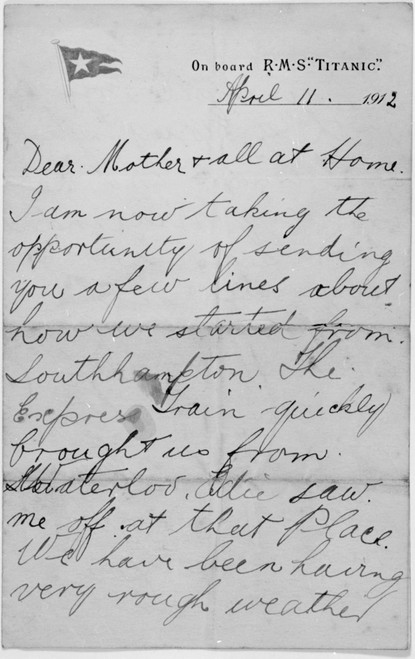 On board R·M·S "TITANIC".
April 11. 1912
Dear Mother & all at Home.
I am now taking the
opportunity of sending
you a few lines about
how we started from.
Southhampton. The
Express Train quickly
brought us from.
Waterloo. Edie saw.
me off at that Place.
We have been having
very rough weather